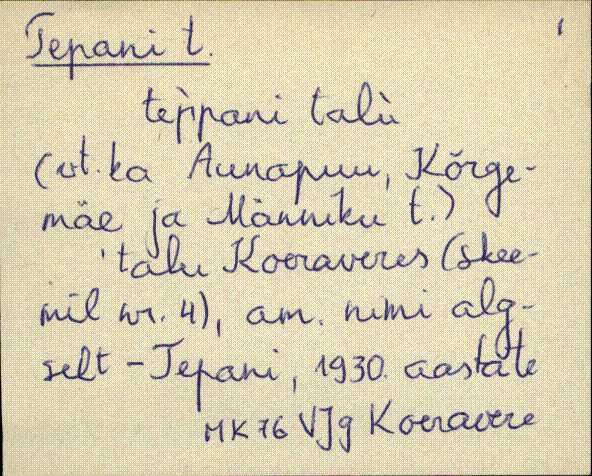 Tepani t.
1
tep̀pani talù
(vt. ka Aunapuu, Kõrge-
mäe ja Männiku t.)
'talu Koeraveres (skee-
mil nr. 4), am. nimi alg-
selt - Tepani, 1930. aastate
MK 76 VJg Koeravere